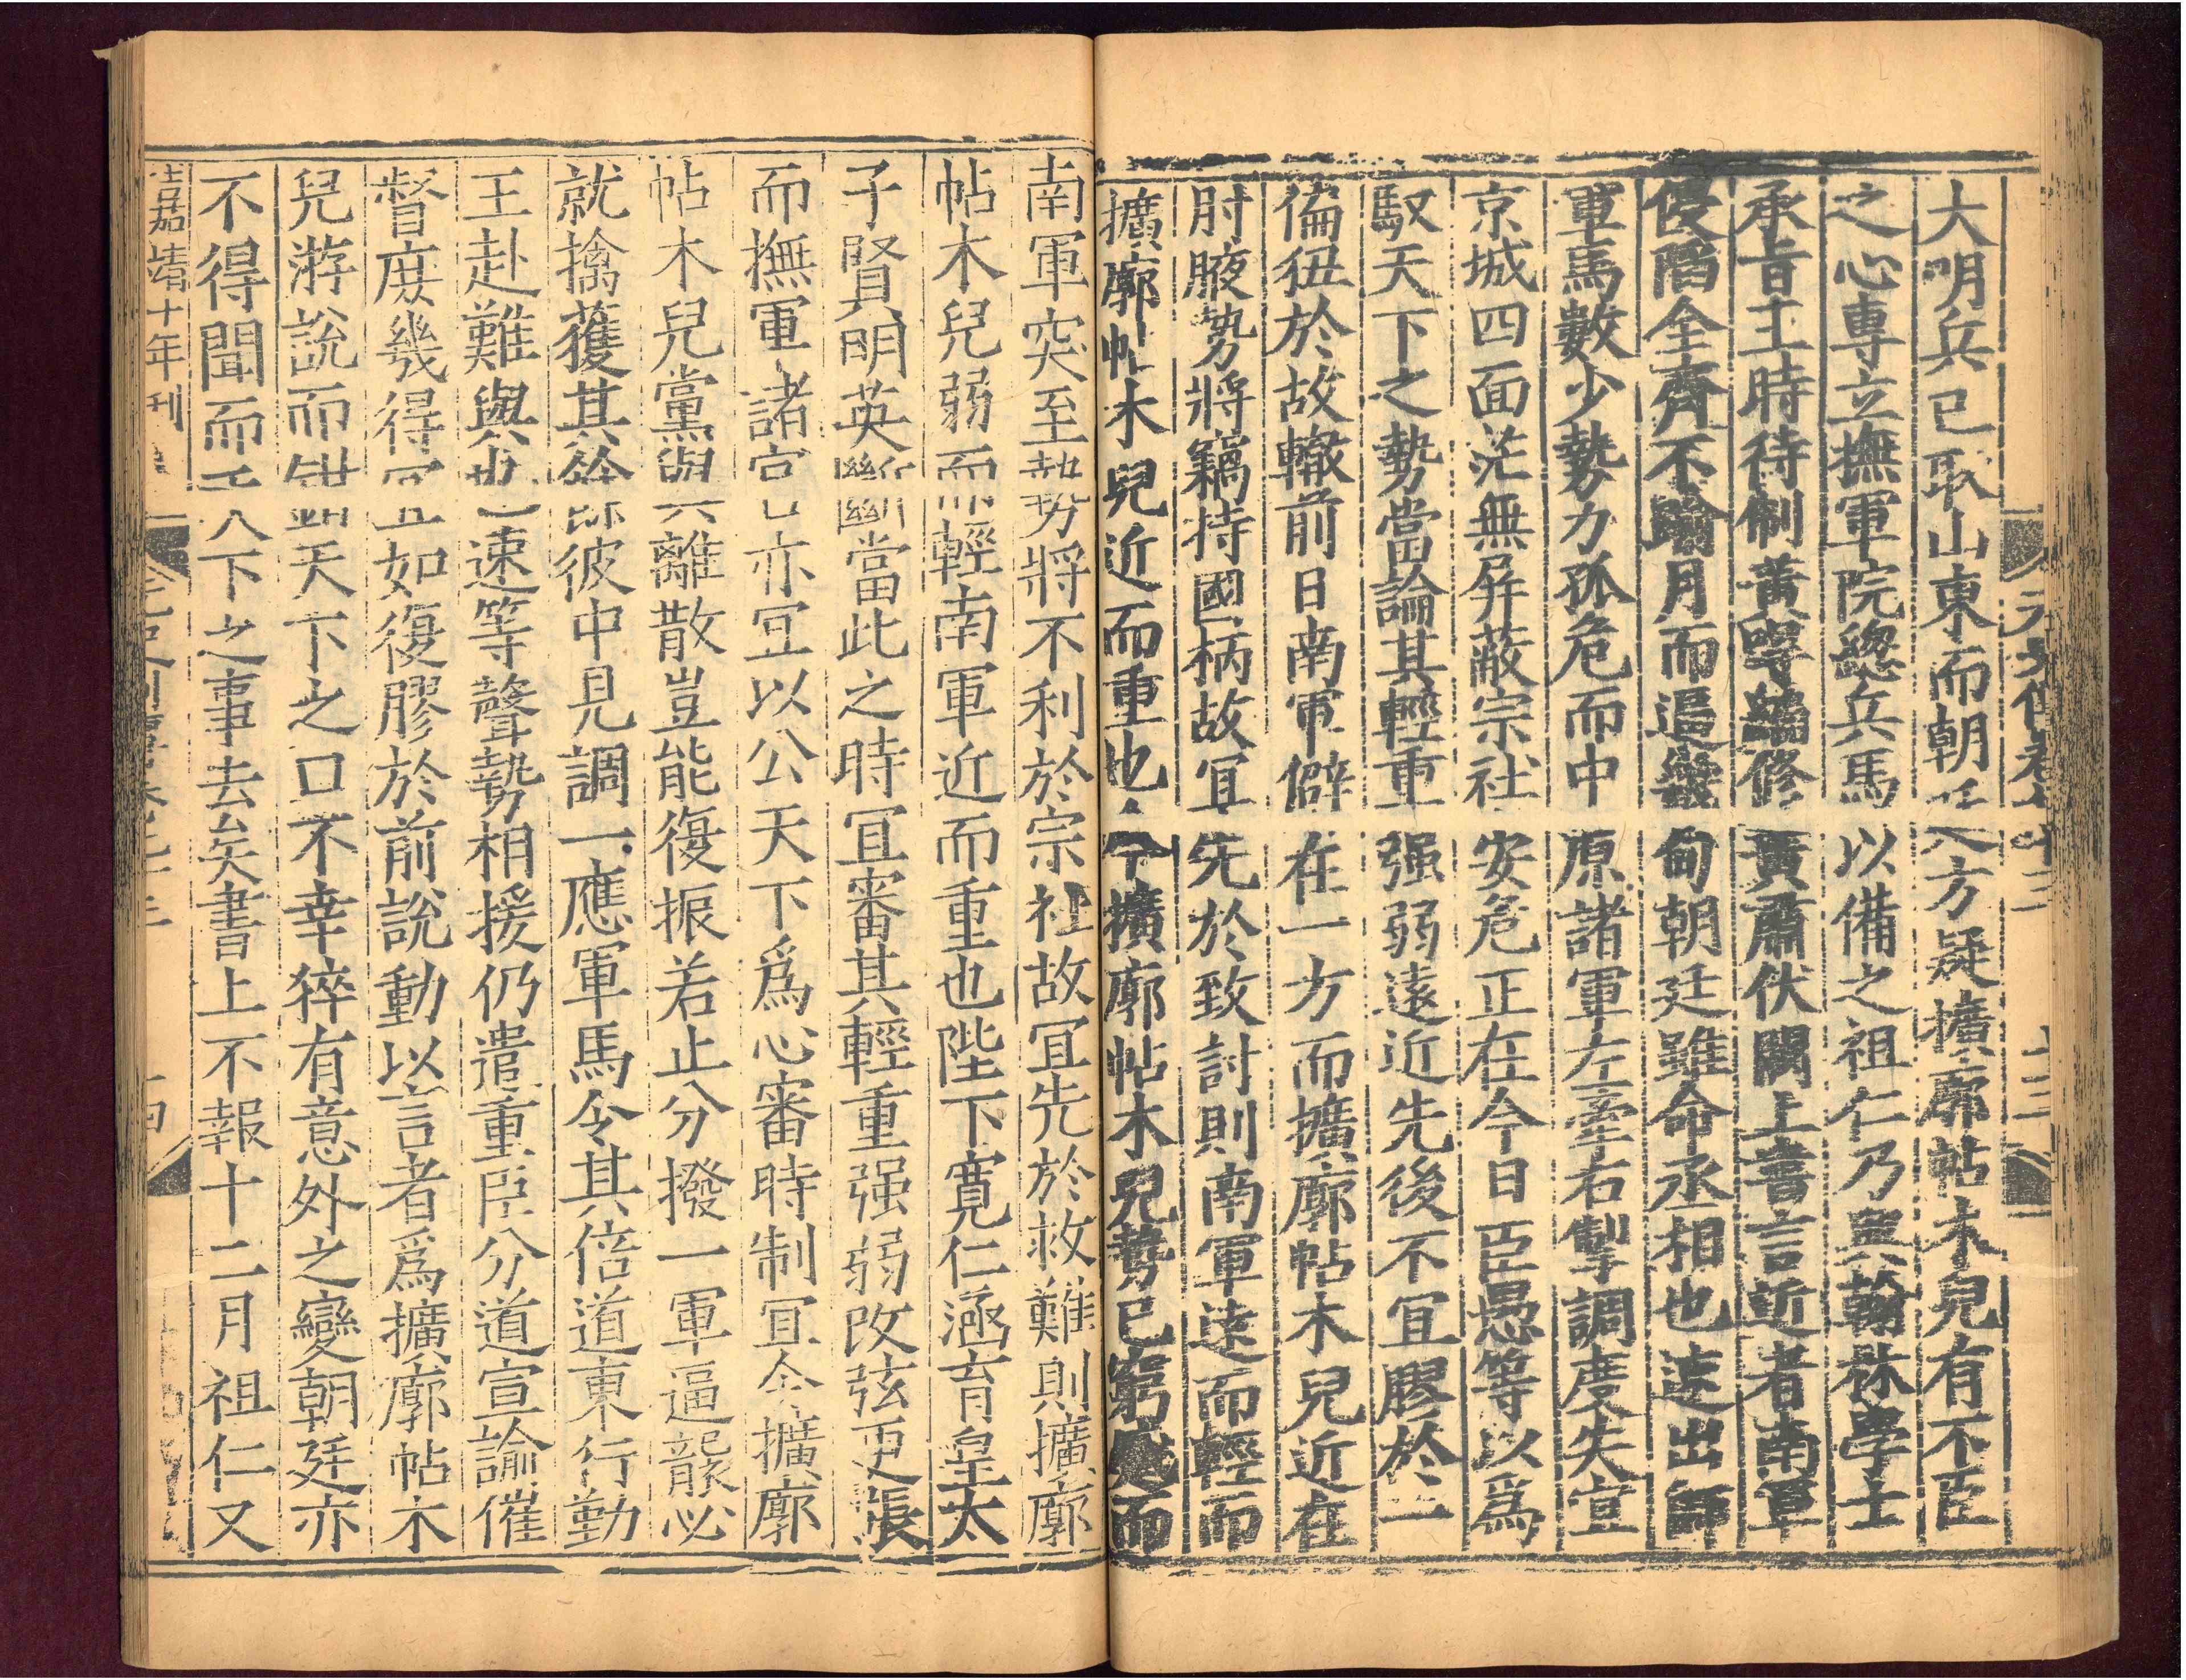 大明兵已取山東而朝廷方疑擴廓帖木兒有不臣
之心專立撫軍院緫兵馬以備之祖仁乃與翰林學士
承旨王時待制黃㬇編修黃肅伏闕上書言近者南軍
侵陷全齊不踰月而逼畿甸朝廷雖命丞相也速出師
軍馬數少勢力孤危而中原諸軍左牽右掣調度失宜
京城四面茫無屏蔽宗社安危正在今日臣愚等以爲
馭天下之勢當論其輕重强弱遠近先後不宜膠於一
偏狃於故轍前日南軍僻在一方而擴廓帖木兒近在
肘腋勢將竊持國柄故宜先於致討則南軍遠而輕而
擴廓帖木兒近而重也今擴廓帖木兒勢已窮蹙而
南軍突至勢將不利於宗社故宜先於救難則擴廓
帖木兒弱而輕南軍近而重也陛下寬仁涵育皇太
子賢明英斷當此之時宜審其輕重强弱改弦更張
而撫軍諸官亦宜以公天下爲心審時制宜今擴廓
帖木兒黨與離散豈能復振若止分撥一軍逼襲必
就擒獲其餘彼中見調一應軍馬令其倍道東行勤
王赴難與也速等聲勢相援仍遣重臣分道宣諭催
督庶幾得宜如復膠於前說動以言者爲擴廓帖木
兒游說而鉗天下之口不幸猝有意外之變朝廷亦
不得聞而天下之事去矣書上不報十二月祖仁又
嘉靖十年刊